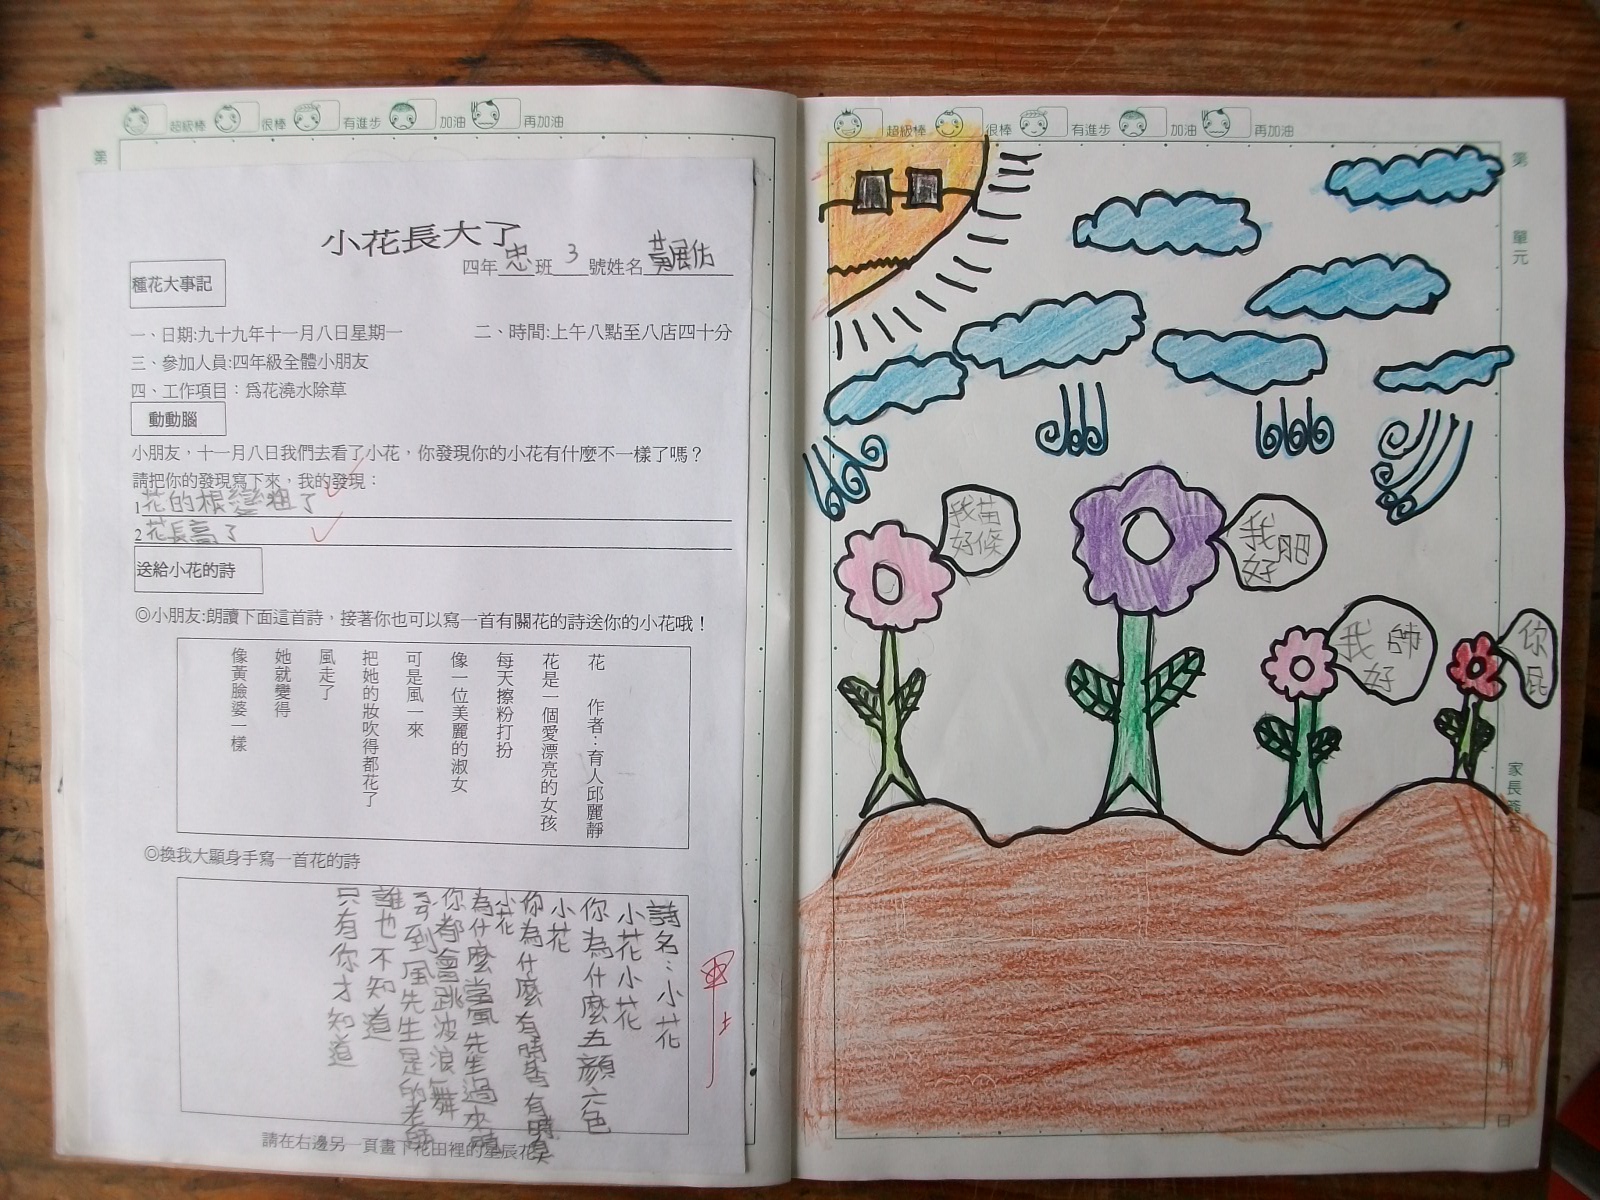 超級棒 很棒 有進步 加油 再加油
第
小花長大了
四年忠班3號姓名黃展佑
種花大事記
一、日期:九十九年十一月八日星期一
二、時間:上午八點至八店四十分
三、參加人員:四年級全體小朋友
四、工作項目：為花澆水除草
動動腦
小朋友，十一月八日我們去看了小花，你發現你的小花有什麼不一樣了嗎？
請把你的發現寫下來，我的發現：
1花的根變粗了
2花長高了
送給小花的詩
◎小朋友:朗讀下面這首詩，接著你也可以寫一首有關花的詩送你的小花哦！
花 作者：育人邱麗靜
花是一個愛漂亮的女孩
每天擦粉打扮
像一位美麗的淑女
可是風一來
把她的妝吹得都花了
風走了
她就變得
像黃臉婆一樣
◎換我大顯身手寫一首花的詩
詩名：小花
小花小花
你為什麼五顏六色
小花
你為什麼有時香有時臭
小花
為什麼當風先生過來時
你都會跳波浪舞
到風先生是的老師
誰也不知道
只有你才知道
請在右邊另一頁畫下花田裡的星辰花
超級棒 很棒 有進步 加油 再加油
第 單元
我苗
好條
我肥
好
我帥
好
你
屁
家長簽名
月 日